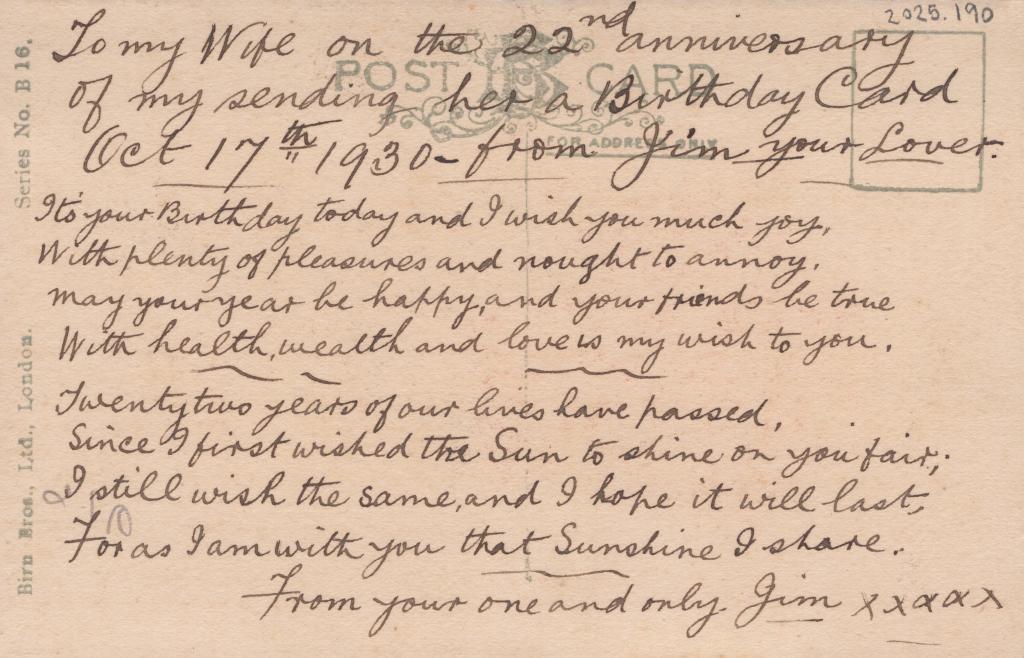 2025.190
To my Wife on the 22nd anniversary
POST CARD
of my sending her a Birthday Card
FOR ADDRESS ONLY
Oct 17th 1930 - from Jim your Lover.
Its your Birthday today and I wish you much joy,
With plenty of pleasures and nought to annoy.
may your year be happy, and your friends be true
With health, wealth and love is my wish to you.
Twentytwo years of our lives have passed,
Since I first wished the Sun to shine on you fair;
I still wish the same, and I hope it will last,
For as I am with you that Sunshine I share.
From your one and only Jim xxxxx
Birn Bros., Ltd., London. Series No. B 16.